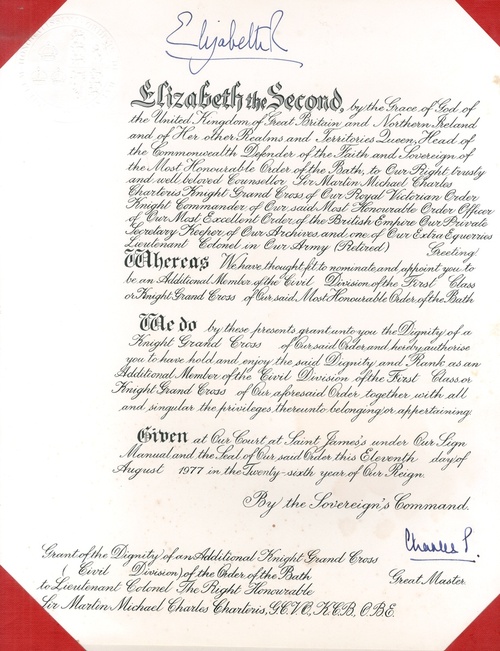 Elizabeth R
Elizabeth the Second, by the Grace of God, of
the United Kingdom of Great Britain and Northern Ireland
and of Her other Realms and Territories Queen, Head of
the Commonwealth Defender of the Faith and Sovereign of
the Most Honourable Order of the Bath, to Our Right trusty
and well beloved Counsellor Sir Martin Michael Charles
Charteris Knight Grand Cross of Our Royal Victorian Order
Knight Commander of Our said Most Honourable Order Officer
of Our Most Excellent Order of the British Empire Our Private
Secretary Keeper of Our Archives and one of Our Extra Equerries
Lieutenant Colonel in Our Army (Retired) Greeting
Whereas We have thought fit to nominate and appoint you to
be an Additional Member of the Civil Division of the First Class
or Knight Grand Cross of Our said Most Honourable Order of the Bath
We do by these presents grant unto you the Dignity of a
Knight Grand Cross of Our said Order and hereby authorise
you to have hold and enjoy the said Dignity and Rank as an
Additional Member of the Civil Division of the First Class or
Knight Grand Cross of Our aforesaid Order together with all
and singular the privileges thereunto belonging or appertaining
Given at Our Court at Saint James's under Our Sign
Manual and the Seal of Our said Order this Eleventh day of
August 1977 in the Twenty-sixth year of Our Reign.
By the Sovereign's Command.
Charles P.
Great Master
Grant of the Dignity of an Additional Knight Grand Cross
( Civil Division) of the Order of the Bath
to Lieutenant Colonel The Right Honourable
Sir Martin Michael Charles Charteris, G.C.V.O., K.C.B., O.B.E.